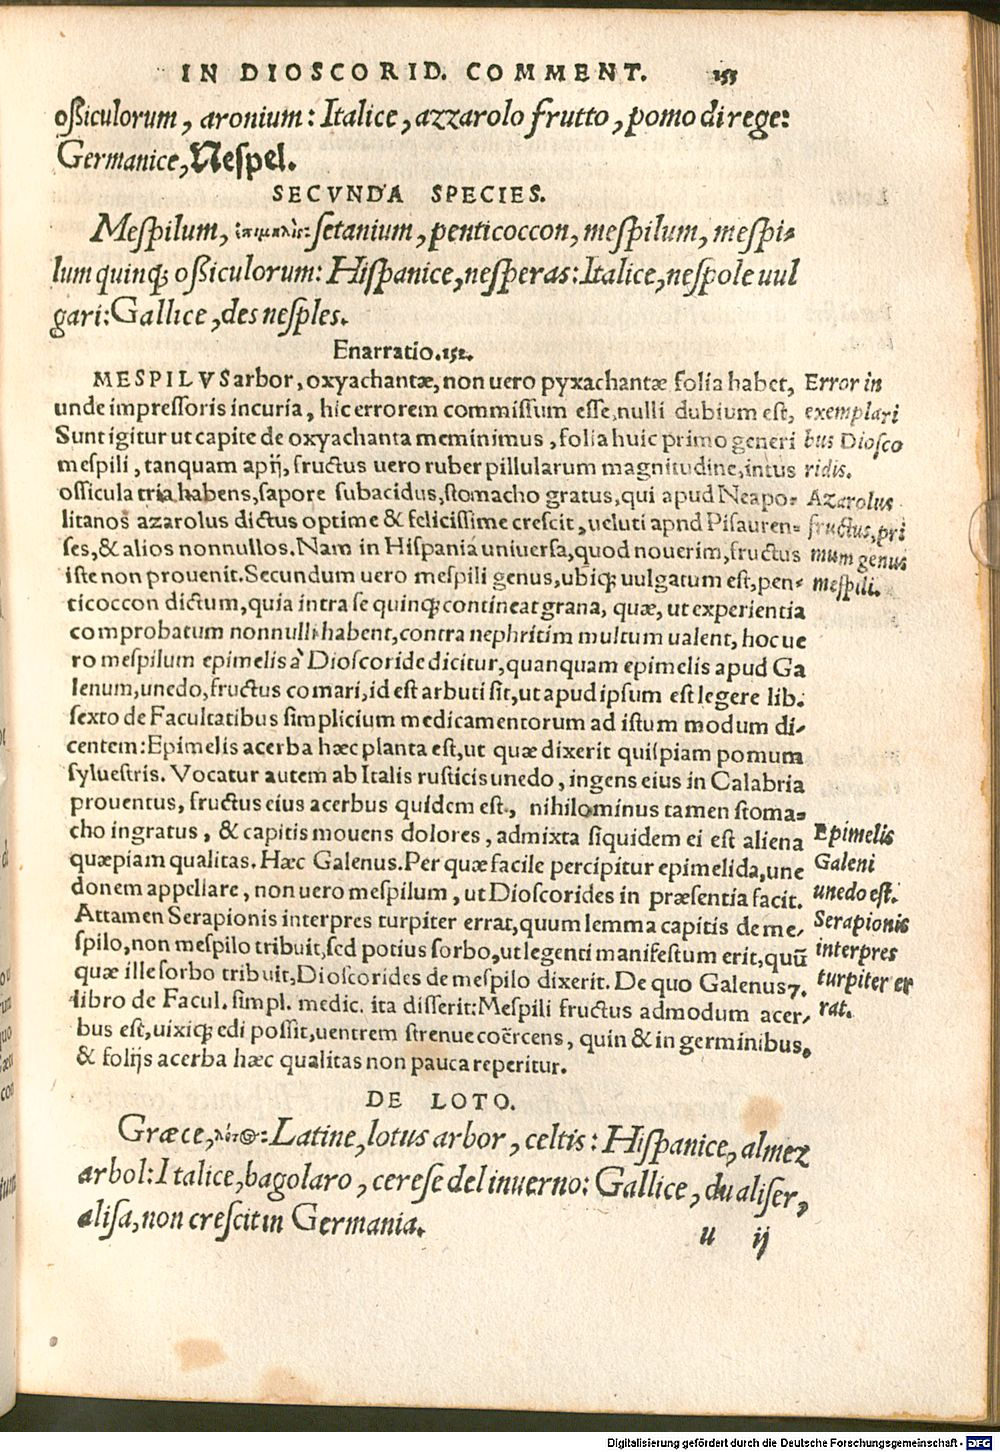 IN DIOSCORID. COMMENT. 153
oßiculorum, aronium: Italice, azzarolo frutto, pomo di rege:
Germanice, Nespel.
SECVNDA SPECIES.
Mespilum, ἐπιμηλὶς: setanium, penticoccon, mespilum, mespi-
lum quinqꝫ oßiculorum: Hispanice, nesperas: Italice, nespole uul
gari: Gallice, des nesples.
Enarratio. 152.
MESPILVS arbor, oxyachantæ, non uero pyxachantæ folia habet,
unde impressoris incuria, hic errorem commissum esse, nulli dubium est,
Sunt igitur ut capite de oxyachanta meminimus, folia huic primo generi
mespili, tanquam apij, fructus uero ruber pillularum magnitudine, intus
ossicula tria habens, sapore subacidus, stomacho gratus, qui apud Neapo-
litanos azarolus dictus optime & felicissime crescit, ueluti apnd Pisauren-
ses, & alios nonnullos. Nam in Hispania uniuersa, quod nouerim, fructus
iste non prouenit. Secundum uero mespili genus, ubiqꝫ uulgatum est, pen-
ticoccon dictum, quia intra se quinqꝫ contineat grana, quæ, ut experientia
comprobatum nonnulli habent, contra nephritim multum ualent, hoc ue
ro mespilum epimelis à Dioscoride dicitur, quanquam epimelis apud Ga
lenum, unedo, fructus comari, id est arbuti sit, ut apud ipsum est legere lib.
sexto de Facultatibus simplicium medicamentorum ad istum modum di-
centem: Epimelis acerba hæc planta est, ut quæ dixerit quispiam pomum
syluestris. Vocatur autem ab Italis rusticis unedo, ingens eius in Calabria
prouentus, fructus eius acerbus quidem est, nihilominus tamen stoma-
cho ingratus, & capitis mouens dolores, admixta siquidem ei est aliena
quæpiam qualitas. Hæc Galenus. Per quæ facile percipitur epimelida, une
donem appellare, non uero mespilum, ut Dioscorides in præsentia facit.
Attamen Serapionis interpres turpiter errat, quum lemma capitis de me-
spilo, non mespilo tribuit, sed potius sorbo, ut legenti manifestum erit, quū
quæ ille sorbo tribuit, Dioscorides de mespilo dixerit. De quo Galenus 7.
libro de Facul. simpl. medic. ita disserit: Mespili fructus admodum acer-
bus est, uixqꝫ edi possit, uentrem strenue coërcens, quin & in germinibus,
& folijs acerba hæc qualitas non pauca reperitur.
Error in
exemplari
bus Diosco
ridis.
Azarolus
fructus, pri
mum genus
mespili.
Epimelis
Galeni
unedo est.
Serapionis
interpres
turpiter er
rat.
DE LOTO.
Græce, λώτος: Latine, lotus arbor, celtis: Hispanice, almez
arbol: Italice, bagolaro, cerese del inuerno: Gallice, du aliser,
alisa, non crescit in Germania.
u ij
Digitalisierung gefördert durch die Deutsche Forschungsgemeinschaft - DFG